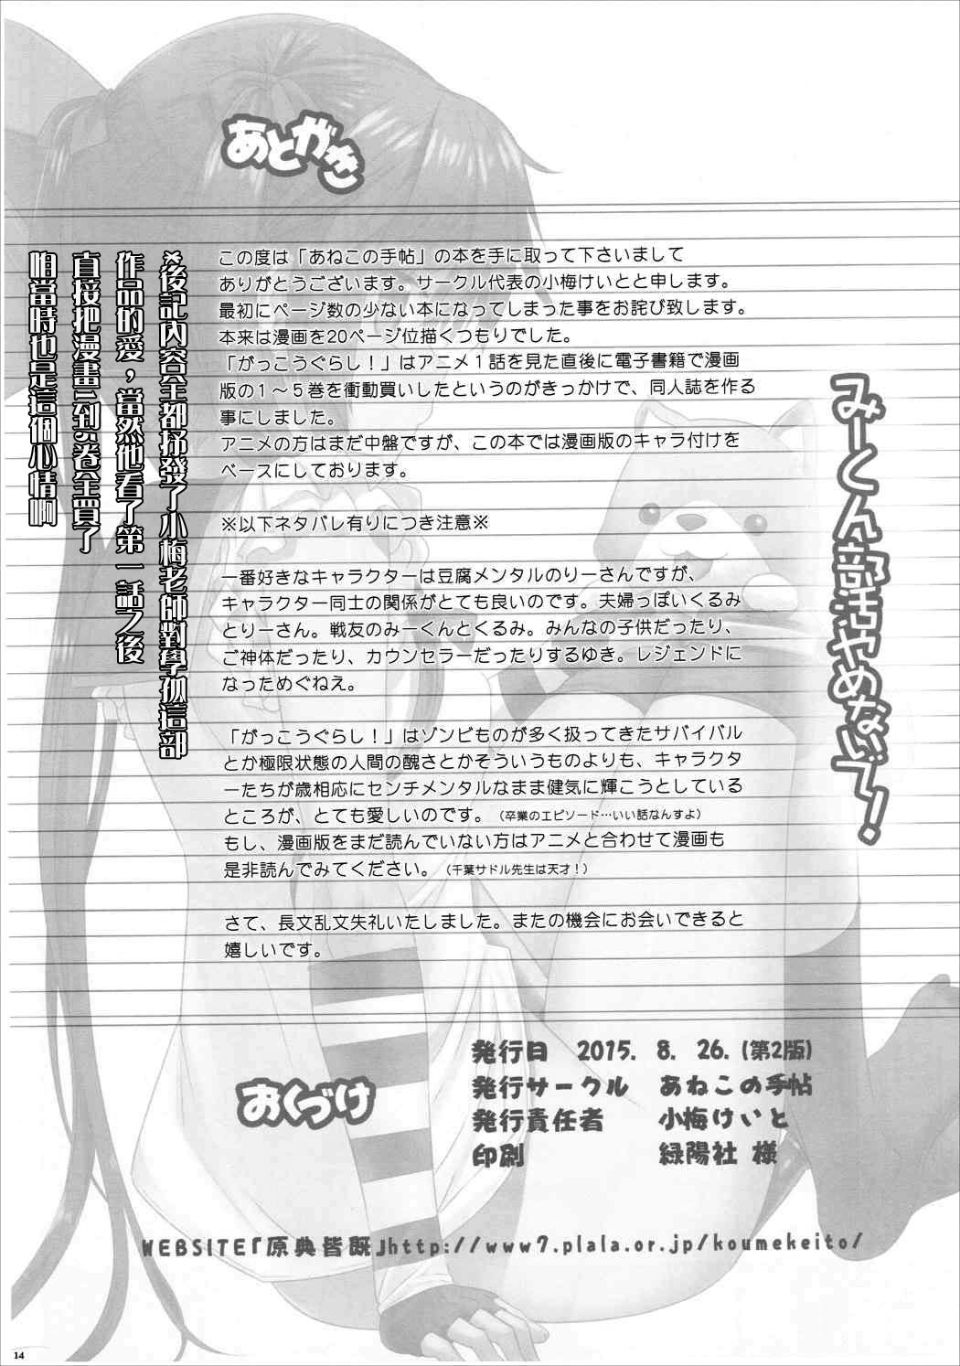 あとがき
この度は「あねこの手帖」の本を手に取って下さいまして
ありがとうございます。サークル代表の小梅けいとと申します。
最初にページ数の少ない本になってしまった事をお詫び致します。
本来は漫画を20ページ位描くつもりでした。
「がっこうぐらし！」はアニメ１話を見た直後に電子書籍で漫画
版の１～５巻を衝動買いしたというのがきっかけで、同人誌を作る
事にしました。
アニメの方はまだ中盤ですが、この本では漫画版のキャラ付けを
ベースにしております。
※以下ネタバレ有りにつき注意※
一番好きなキャラクターは豆腐メンタルのりーさんですが、
キャラクター同士の関係がとても良いのです。夫婦っぽいくるみ
とりーさん。戦友のみーくんとくるみ。みんなの子供だったり、
ご神体だったり、カウンセラーだったりするゆき。レジェンドに
なっためぐねえ。
「がっこうぐらし！」はゾンビものが多く扱ってきたサバイバル
とか極限状態の人間の醜さとかそういうものよりも、キャラクタ
ーたちが歳相応にセンチメンタルなまま健気に輝こうとしている
ところが、とても愛しいのです。（卒業のエピソード…いい話なんすよ）
もし、漫画版をまだ読んでいない方はアニメと合わせて漫画も
是非読んでみてください。（千葉サドル先生は天才！）
さて、長文乱文失礼いたしました。またの機会にお会いできると
嬉しいです。
みーくん部活やめないで！
※後記內容全都抒發了小梅老師對學孤這部
作品的愛，當然他看了第一話之後
直接把漫畫1到5卷全買了
怕當時也是這個心情啊
おくづけ
発行日 2015. 8. 26.(第2版)
発行サークル あねこの手帖
発行責任者 小梅けいと
印刷 緑陽社 様
WEBSITE「原典皆既」http://www7.plala.or.jp/koumekeito/
14